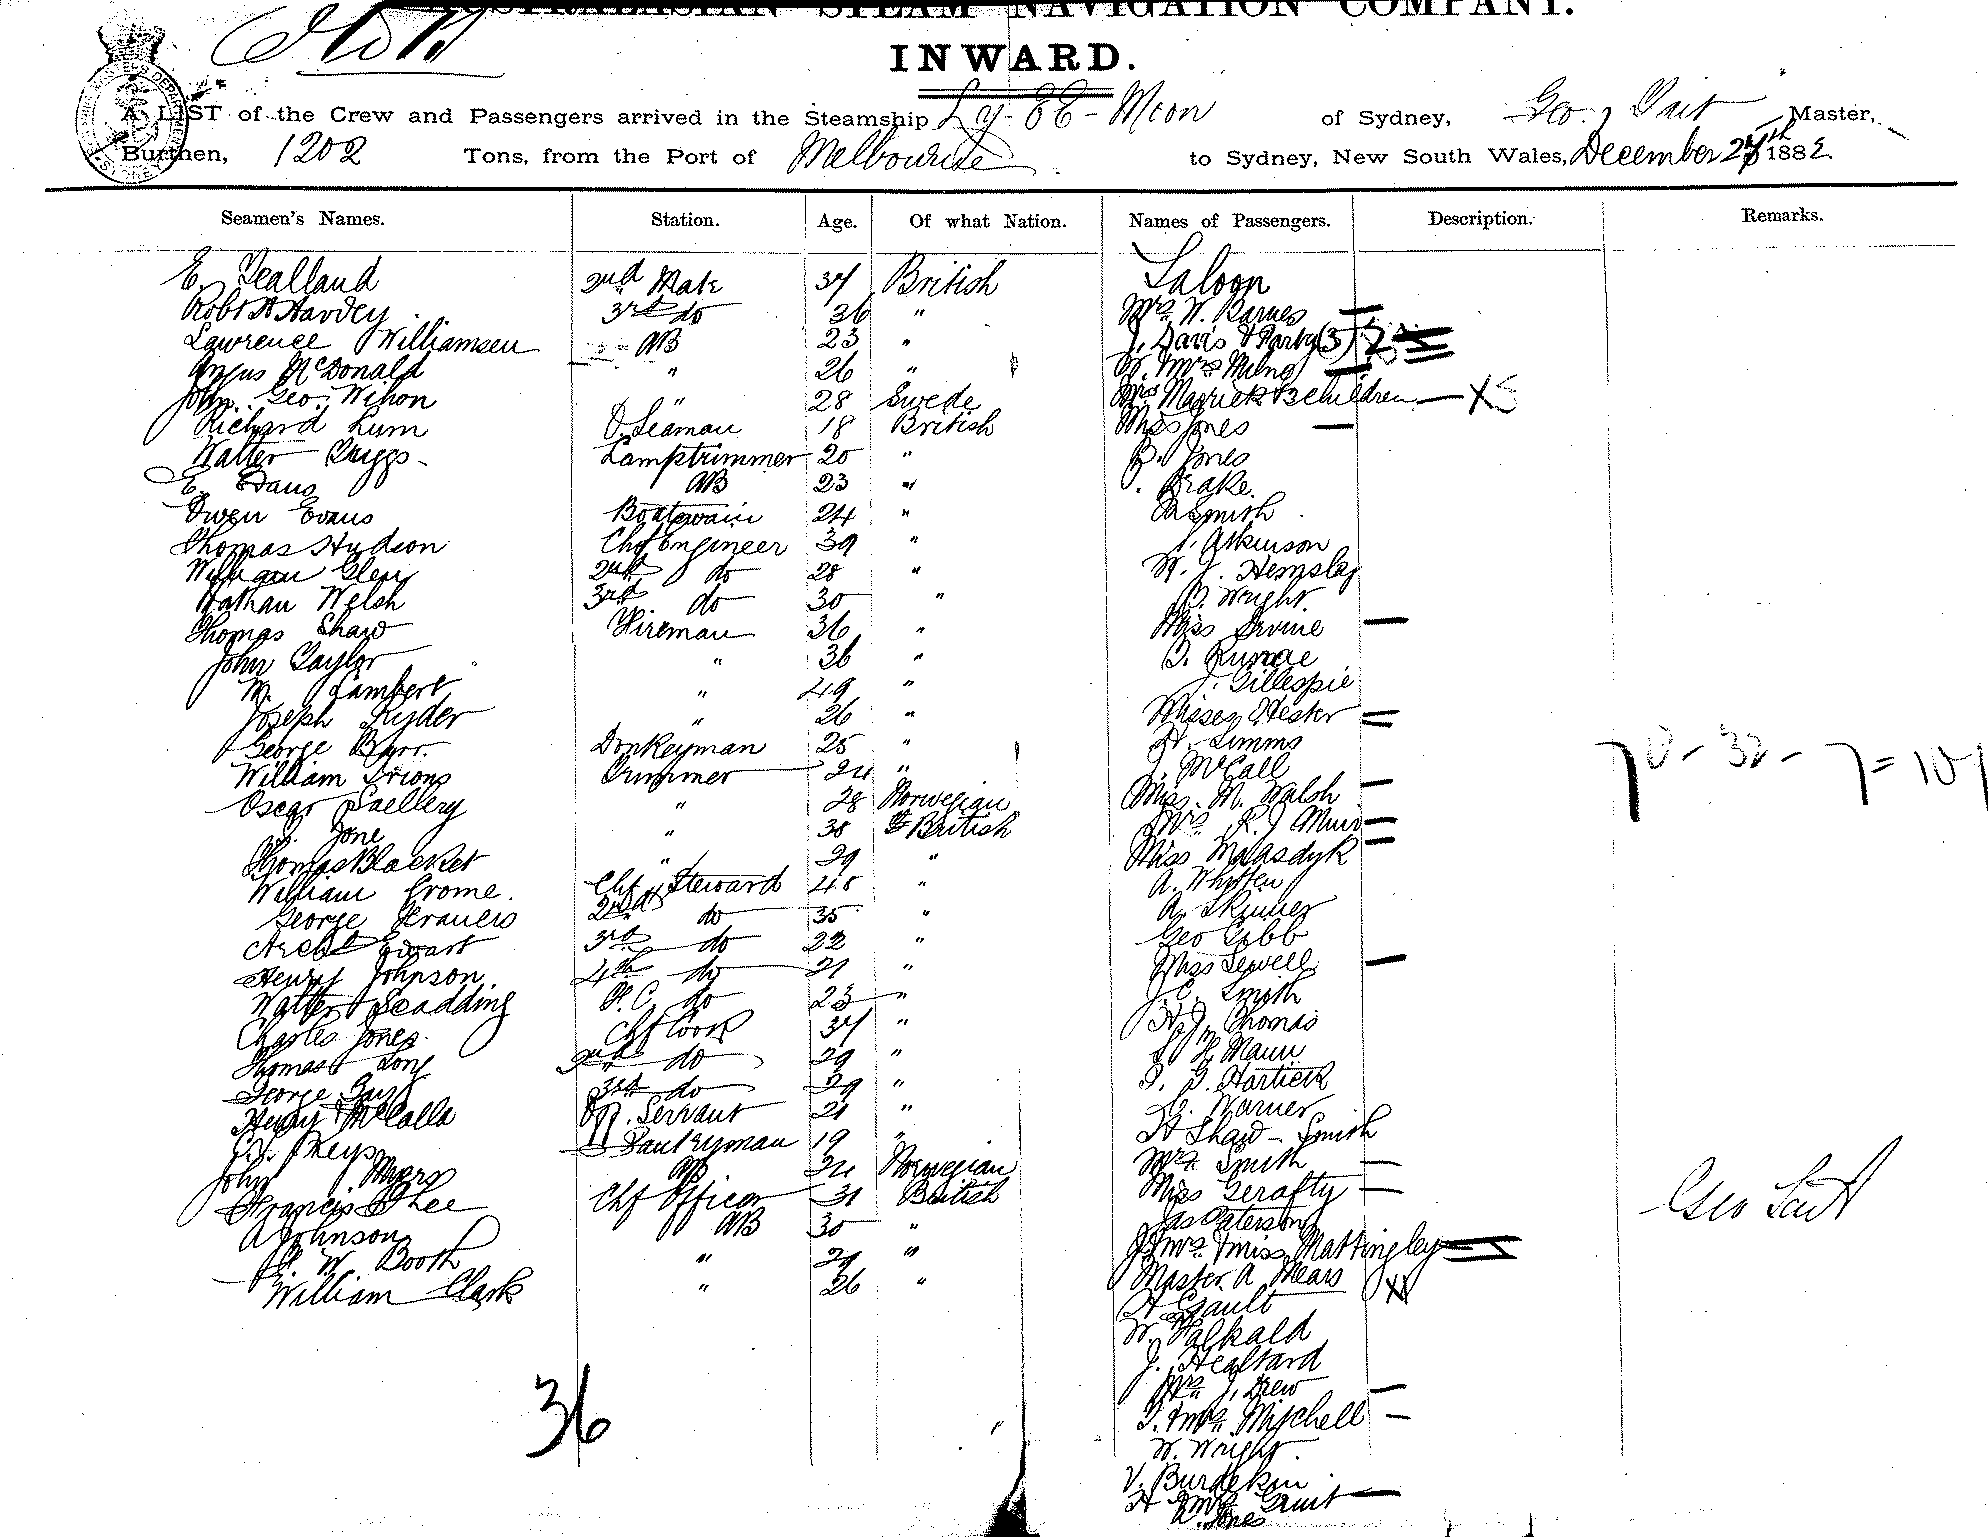 AUSTRALASIAN STEAM NAVIGATION COMPANY.
INWARD.
A LIST of the Crew and Passengers arrived in the Steamship Ly-EE-Moon of Sydney, Geo. Tait Master,
Burthen, 1202 Tons, from the Port of Melbourne to Sydney, New South Wales, December 27th 1882
Seamen's Names. Station. Age. Of what Nation. Names of Passengers. Description. Remarks.
E. Tealland 2nd Mate 37 British Saloon
Robt A Harvey 3rd do 36 " Mrs W. Barnes
Lawrence Williamsen AB 23 " J. Davis & Party (3)
Angus McDonald " 26 " Mrs Milne
John Geo. Wilson " 28 Swede Mrs Marrick & 3 children
Richard Lum O. Seaman 18 British Miss Jones
Walter Briggs Lamptrimmer 20 " B. Jones
E. AB 23 " Drake.
Owen Evans Boatswain 24 " Smith
Thomas Hudson Chf Engineer 39 " Atkinson
William Glen 2nd do 28 " W. J. Hemsley
Nathan Welsh 3rd do 30 " Wright
Thomas Shaw Fireman 36 " Miss Irvine
John Taylor " 36 "
M. Lambert " 49 " J. Gillespie
Joseph Ryder " 26 " Misses Hester
George Barr. Donkeyman 25 " Simms
William Trimmer 24 " J. McCall
Oscar " 28 Norwegian Miss M. Walsh
Jone " 38 British Mrs R. J Muir
Thomas Blacket " 29 " Miss Maasdyk
William Crome. Chf Steward 48 " A. Whitten
George 2nd do 35 " A. Skinner
Archd Ewart 3rd do 22 " Geo Cobb
Henry Johnson. 4th do 21 " Miss Sewell
Walter Scadding F.C. do 23 " J. C. Smith
Charles Jones Chf Cook 37 " Thomas
Thomas Long 2nd do 29 " Mann
George 3rd do 29 "
Henry McCalla Off. Servant 21 " Warner
Pantryman 19 " H Shaw-Smith
John Myers AB 24 Norwegian Mrs Smith
Francis Chf Officer 31 British Miss Gerafty
A Johnson AB 30 " Jas Paterson
W Booth " 29 " Mrs & Miss Mattingley
William Clark " 26 " Master A Mears
H Gault
W.
J.
Mrs J. Drew
36 T. & Mrs Mitchell
W. Wright
V. Burdekin
H & Mrs
Jones
70 - 30 - 7 = 107
Geo Tait